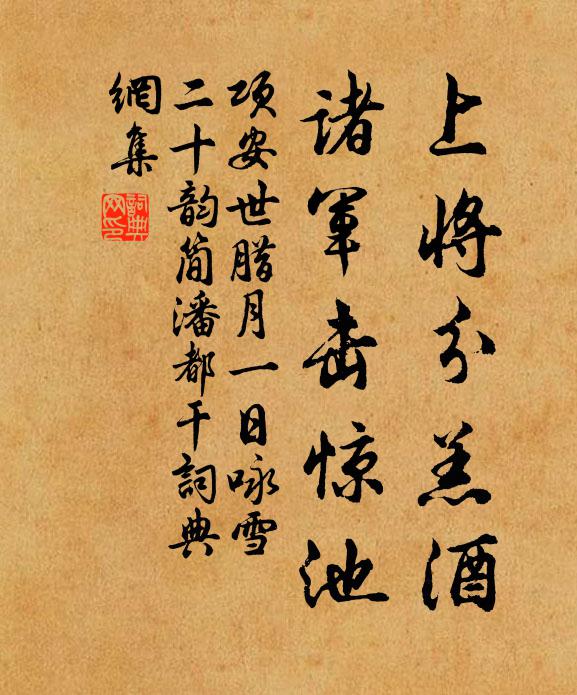 上将分羔酒
诸军击惊池
项安世腊月一日咏雪
二十韵简潘都干詞典
網集
詞典
网印